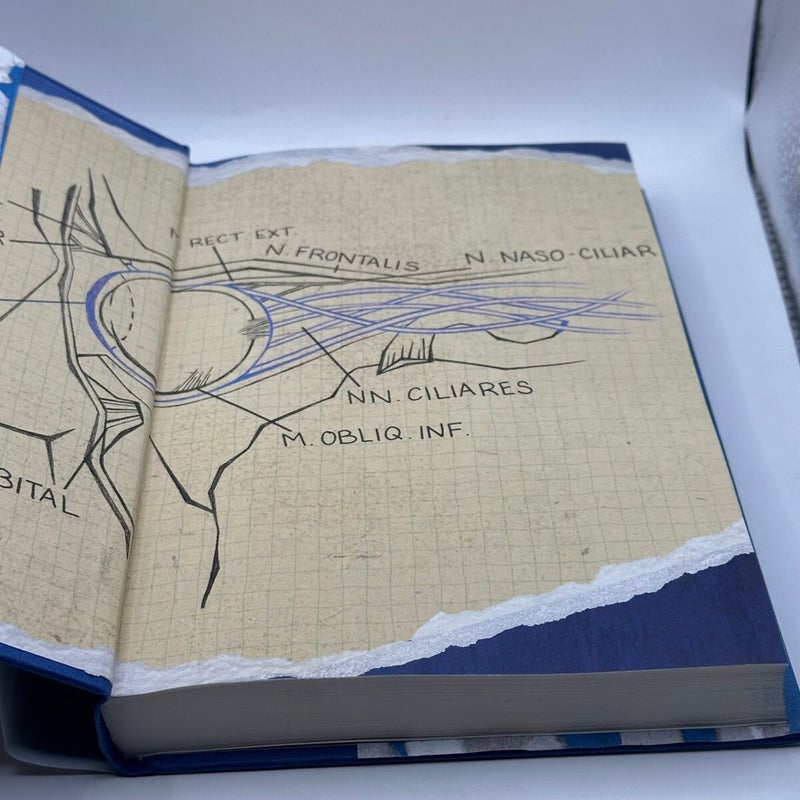 RECT. EXT.
N. FRONTALIS
N. NASO-CILIAR
NN. CILIARES
M. OBLIQ. INF.
BITAL